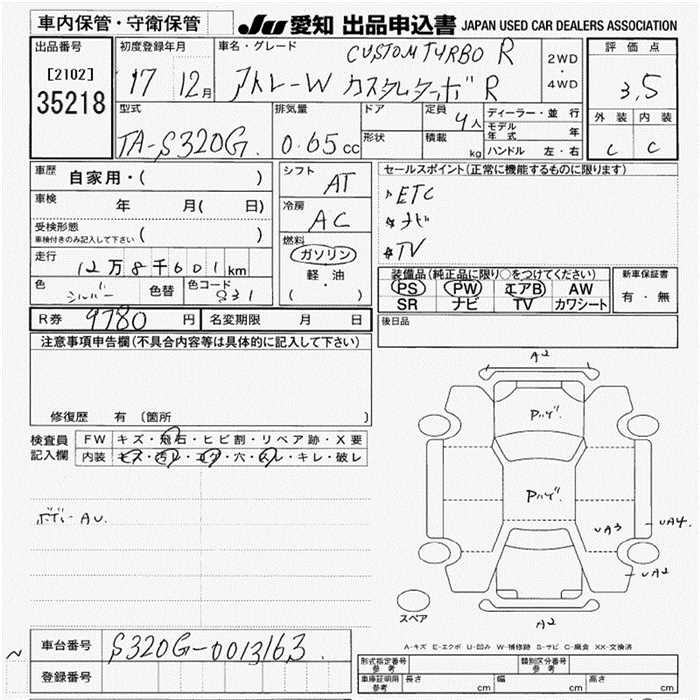 車内保管・守衛保管
JU 愛知 出品申込書 JAPAN USED CAR DEALERS ASSOCIATION
出品番号
[2102]
35218
初度登録年月
17 12月
車名・グレード
CUSTOM TURBO R
アトレーW カスタムターボ R
2WD
・
4WD
評価点
3,5
外装 内装
C C
型式
TA-S320G.
排気量
0.65cc
ドア
形状
定員
4人
積載
kg
ディーラー・並行
モデル年式 年
ハンドル 左・右
車歴
自家用・( )
車検
年 月( 日)
受検形態
車検付きのみ記入して下さい ( )
走行
12万8千601km
色
シルバー
色替
色コード
S31
シフト
AT
冷房
AC
燃料
ガソリン
軽・油
( )
セールスポイント(正常に機能するものに限ります)
ETC
ナビ
TV
装備品(純正品に限り○をつけてください)
PS PW エアB AW
SR ナビ TV カワシート
新車保証書
有・無
R券 9780 円
名変期限 月 日
後日品
注意事項申告欄(不具合内容等は具体的に記入して下さい)
修復歴 有 (箇所
検査員
記入欄
FW キズ・飛石・ヒビ割・リペア跡・X要
内装 キズ・汚レ・コゲ・穴・スレ・キレ・破レ
ボディーAU.
A2
Pハゲ.
Pハゲ.
UA3
UA4
UA2
A2
スペア
A-キズ E-エクボ U-凹み W-補修跡 S-サビ C-腐食 XX-交換済
車台番号 S320G-0013163
登録番号
形式指定番号
参考
類別区分番号
参考
車庫証明用
参考
長さ cm 幅 cm 高さ cm